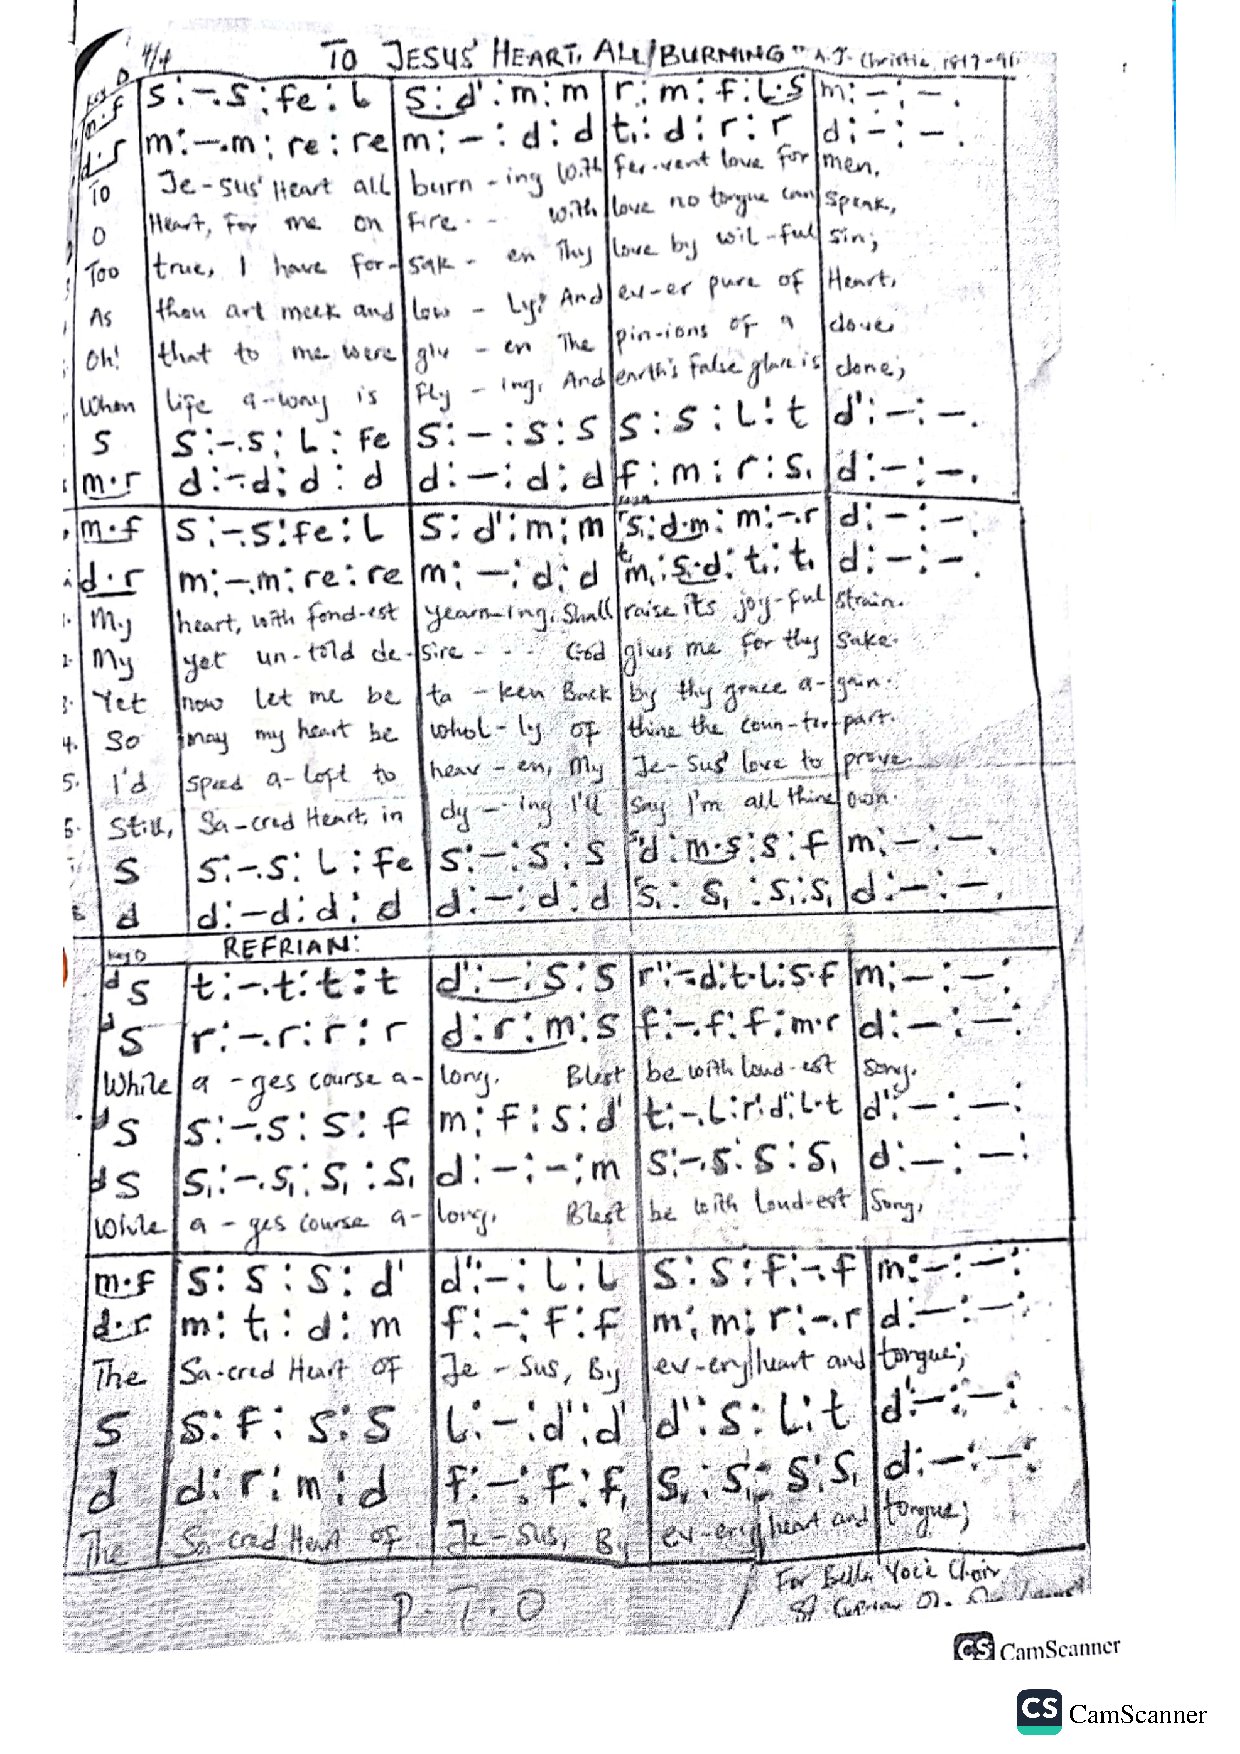 4/4 TO JESUS' HEART, ALL BURNING" A.J. Christie, 1817-91
Key D
m.f s:-.s:fe:L s:d':m:m r:m:f:L.s m:-:-.
d.r m:-.m:re:re m:-:d:d t₁:d:r:r d:-:-.
To Je-sus' Heart all burn-ing With fer-vent love for men,
O Heart, For me on fire - - With love no tongue can speak,
Too true, I have for-sak-en Thy love by wil-ful sin;
As thou art meek and low-ly? And ev-er pure of Heart,
Oh! that to me were giv-en The pin-ions of a dove,
When life a-way is Fly-ing, And earth's false glare is done;
s s:-.s:L:fe s:-:s:s s:s:L:t d':-:-.
m.r d:-.d:d:d d:-:d:d f:m:r:s₁ d:-:-.
m.f s:-.s:fe:L s:d':m:m ʳs₁:d.m:m:-.r d:-:-.
d.r m:-.m:re:re m:-:d:d ᵗm₁:s₁.d:t₁:t₁ d:-:-.
1. My heart, with fond-est yearn-ing, Shall raise its joy-ful strain.
2. My yet un-told de-sire - - - God gives me For thy Sake.
3. Yet now let me be ta-ken Back by thy grace a-gain.
4. So may my heart be whol-ly of thine the coun-ter-part.
5. I'd speed a-loft to heav-en, My Je-sus' love to prove.
6. Still, Sa-cred Heart, in dy-ing I'll Say I'm all thine own.
s s:-.s:L:fe s:-:s:s ˢd:m.s:s:f m:-:-.
d d:-d:d:d d:-:d:d ʳs₁:s₁:s₁:s₁ d:-:-.
Key D REFRIAN:
ᵈs t:-.t:t:t d':-:s:s r':-.d':t.L:s.f m:-:-:
ᵈs r:-.r:r:r d:r:m:s f:-.f:f:m.r d:-:-:
While a-ges course a-long. Blest be with loud-est song.
ᵈs s:-.s:s:f m:f:s:d' t:-.L:r'.d':L.t d':-:-:
ᵈs s₁:-.s₁:s₁:s₁ d:-:-:m s:-.s:s:s₁ d:-:-:
While a-ges course a-long, Blest be with loud-est Song,
m.f s:s:s:d' d':-:L:L s:s:f:-.f m:-:-:
d.r m:t₁:d:m f:-:f:f m:m:r:-.r d:-:-:
The Sa-cred Heart of Je-sus, By ev-ery heart and tongue;
s s:f:s:s L:-:d':d' d':s:L:t d':-:-:
d d:r:m:d f:-:f:f₁ s₁:s₁:s:s₁ d:-:-:
The Sa-cred Heart of Je-sus, By ev-ery heart and tongue;
P.T.O For Bella Voce Choir
St.
CS CamScanner
CS CamScanner